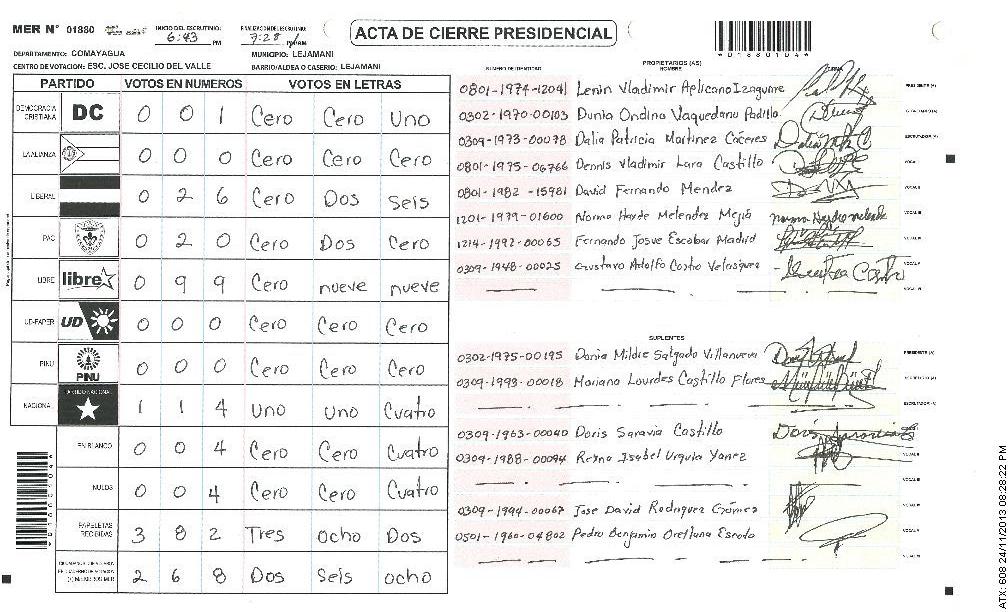 MER N° 01880
INICIO DEL ESCRUTINIO: 6:43 PM
FINALIZACION DEL ESCRUTINIO: 7:28 PM
ACTA DE CIERRE PRESIDENCIAL
DEPARTAMENTO: COMAYAGUA
MUNICIPIO: LEJAMANI
CENTRO DE VOTACION: ESC. JOSE CECILIO DEL VALLE
BARRIO/ALDEA O CASERIO: LEJAMANI
PARTIDO VOTOS EN NUMEROS VOTOS EN LETRAS
DEMOCRACIA CRISTIANA DC 0 0 1 Cero Cero Uno
LA ALIANZA 0 0 0 Cero Cero Cero
LIBERAL 0 2 6 Cero Dos Seis
PAC 0 2 0 Cero Dos Cero
LIBRE libre 0 9 9 Cero nueve nueve
UD-FAPER UD 0 0 0 Cero Cero Cero
PINU PINU 0 0 0 Cero Cero Cero
NACIONAL PARTIDO NACIONAL 1 1 4 Uno Uno Cuatro
EN BLANCO 0 0 4 Cero Cero Cuatro
NULOS 0 0 4 Cero Cero Cuatro
PAPELETAS RECIBIDAS 3 8 2 Tres ocho Dos
2 6 8 Dos Seis ocho
*01880104*
NUMERO DE IDENTIDAD
PROPIETARIOS (AS)
NOMBRE
0801-1974-12041 Lenin Vladimir Aplicano Izaguirre PRESIDENTE (A)
0302-1970-00103 Dunia Ondina Vaquedano Padilla SECRETARIO (A)
0309-1973-00078 Dalia Patricia Martinez Cáceres ESCRUTADOR (A)
0801-1975-06766 Dennis Vladimir Lara Castillo VOCAL I
0801-1982-15981 David Fernando Mendez VOCAL II
1201-1979-01600 Norma Hayde Melendez Mejia VOCAL III
1214-1992-00065 Fernando Josue Escobar Madrid
0309-1948-00025 Gustavo Adolfo Castro Velasquez VOCAL V
VOCAL VI
SUPLENTES
0302-1975-00195 Dania Mildre Salgado Villanueva PRESIDENTE (A)
0309-1993-00018 Mariano Lourdes Castillo Flores SECRETARIO (A)
ESCRUTADOR (A)
0309-1963-00040 Doris Saravia Castillo
0309-1988-00094 Reyna Isabel Urquia Yanez VOCAL II
VOCAL III
0309-1994-00067 Jose David Rodriguez Gómez
0501-1960-04802 Pedro Benjamin Orellana VOCAL V
VOCAL VI
ATX: 608 24/11/2013 08:28:22 PM